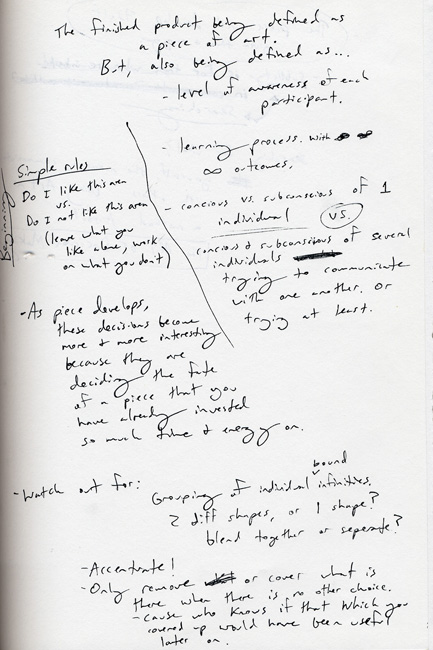 The finished product being defined as
a piece of art.
But, also being defined as...
- level of awareness of each
participant.
- learning process. with
∞ outcomes,
- concious vs. subconscious of 1
individual VS.
concious & subconscious of several
individuals
trying to communicate
with one another. Or
trying at least.
Beginning
Simple rules
Do I like this area
vs.
Do I not like this area
(leave what you
like alone, work
on what you don't)
- As piece develops,
these decisions become
more & more interesting
because they are
deciding the fate
of a piece that you
have already invested
so much time & energy on.
- Watch out for:
Grouping of individual bound infinities.
2 diff shapes, or 1 shape?
blend together or seperate?
- Accentuate!
- Only remove or cover what is
there when there is no other choice.
- cause who knows if that which you
covered up would have been useful
later on.